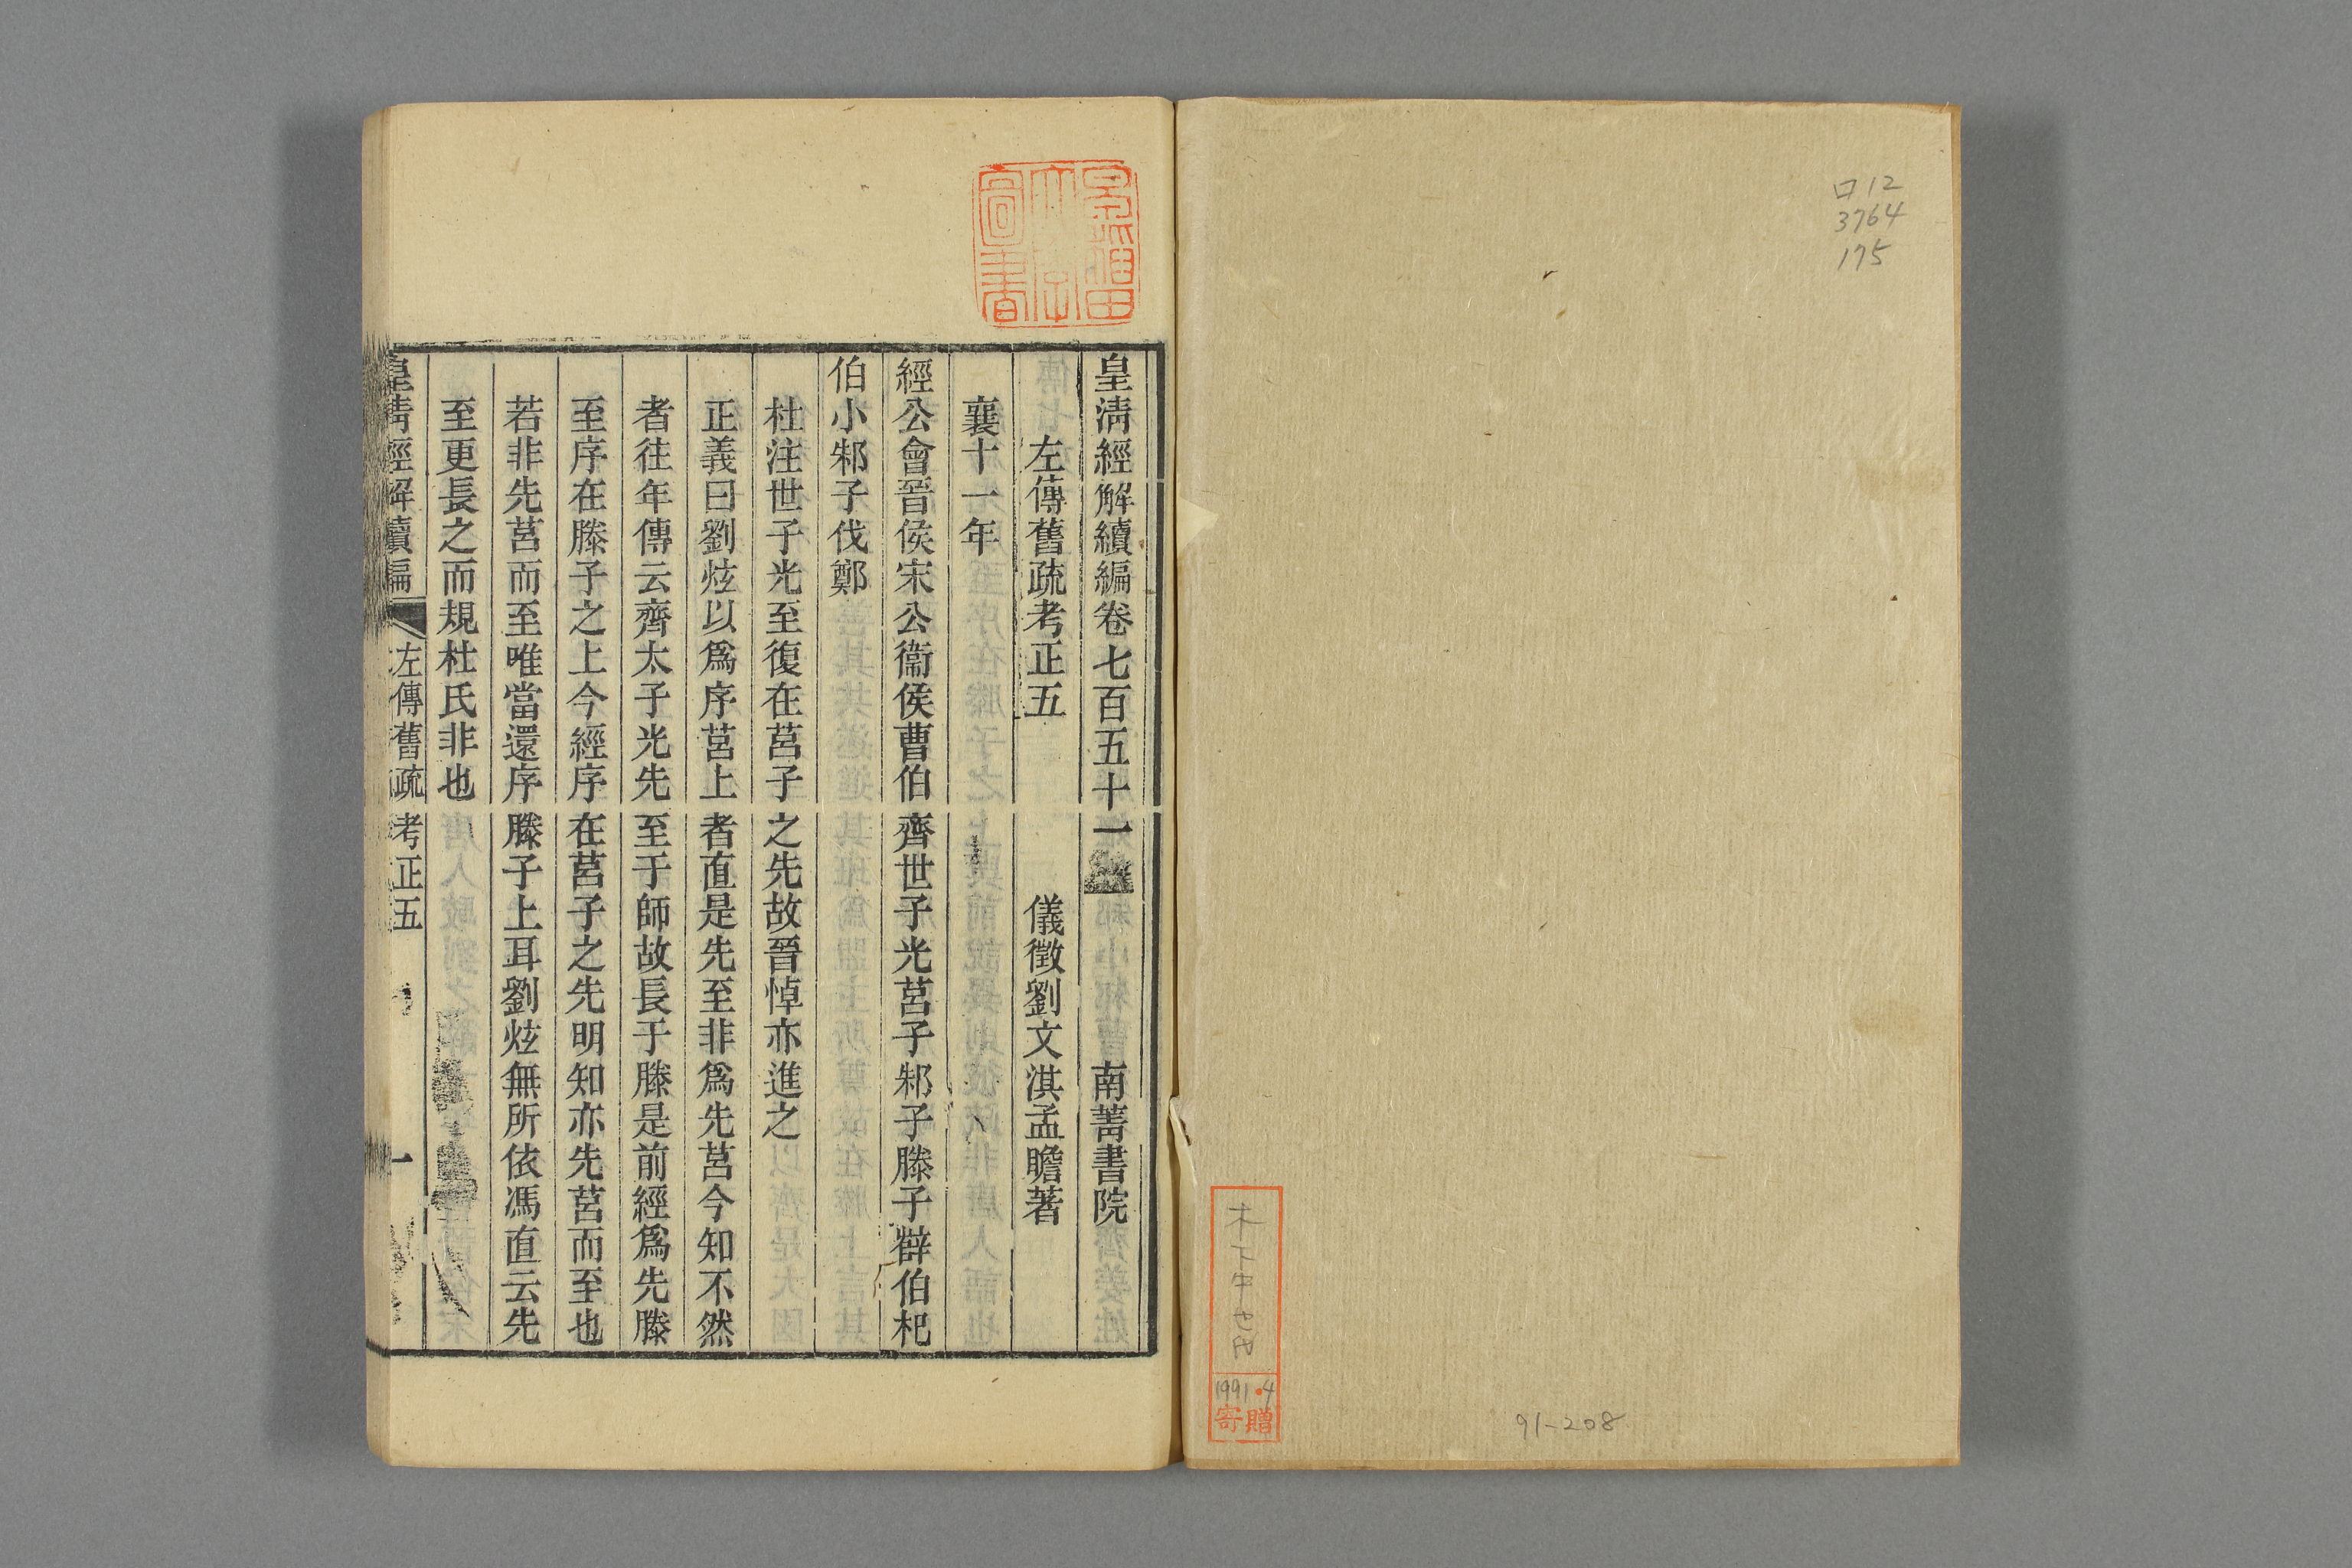 ロ12
3764
175
木下中也氏
1991.4
寄贈
91-208
皇清經解續編卷七百五十一 南菁書院
左傳舊疏考正五 儀徵劉文淇孟瞻著
襄十一年
經公會晉侯宋公衞侯曹伯齊世子光莒子邾子滕子薛伯杞
伯小邾子伐鄭
杜注世子光至復在莒子之先故晉悼亦進之
正義曰劉炫以爲序莒上者直是先至非爲先莒今知不然
者往年傳云齊太子光先至于師故長于滕是前經爲先滕
至序在滕子之上今經序在莒子之先明知亦先莒而至也
若非先莒而至唯當還序滕子上耳劉炫無所依馮直云先
至更長之而規杜氏非也
皇清經解續編 左傳舊疏考正五 一